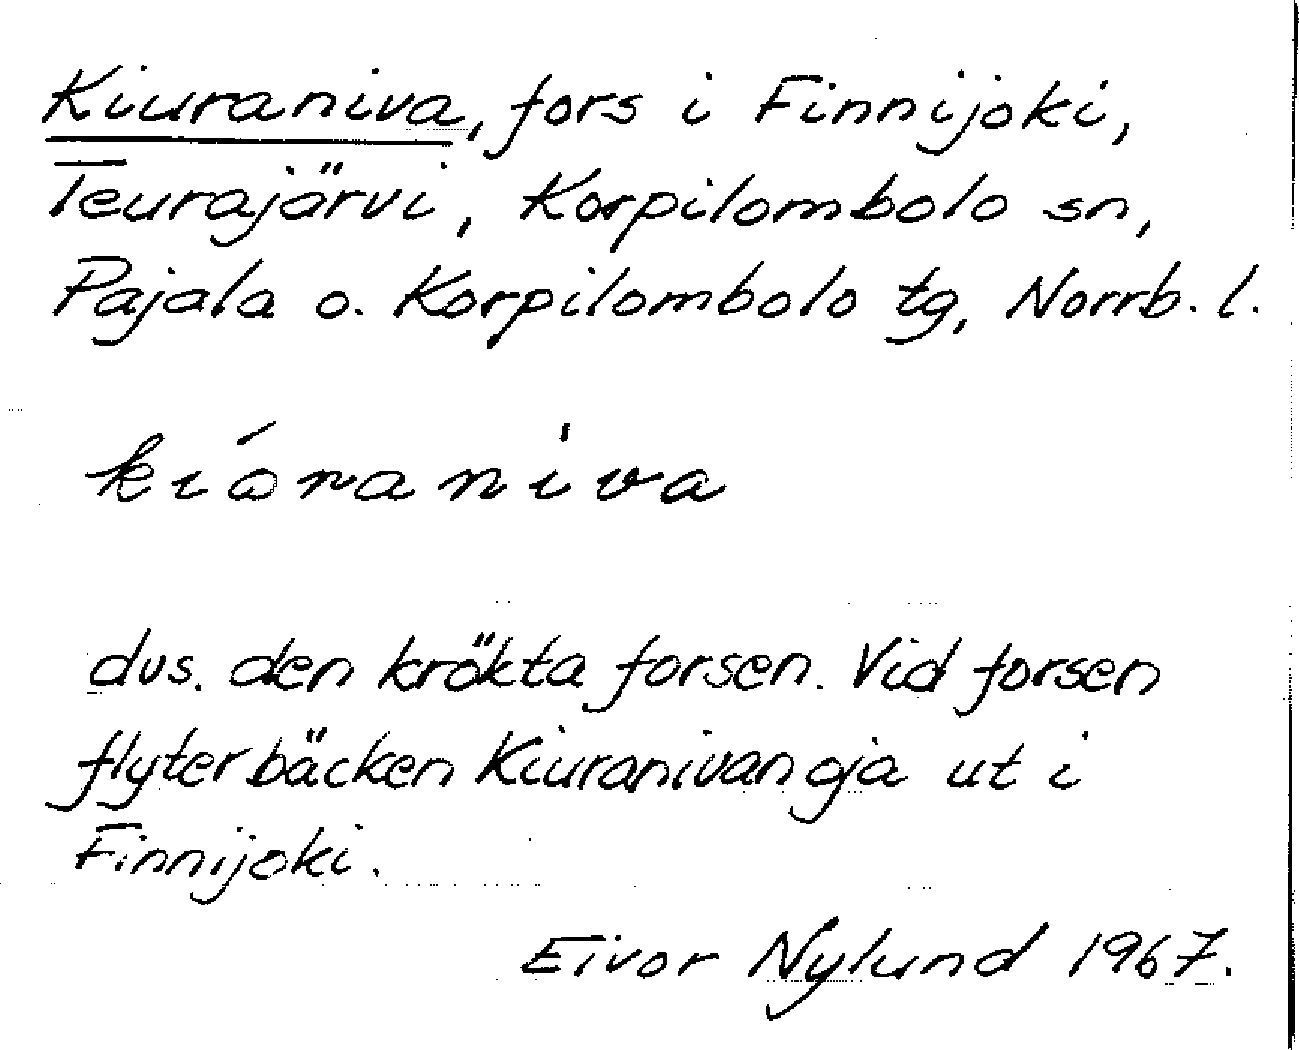 Kiuraniva, fors i Finnijoki,
Teurajärvi, Korpilombolo sn,
Pajala o. Korpilombolo tg, Norrb. l.
kıóraniva
dvs. den krökta forsen. Vid forsen
flyter bäcken Kiuranivanoja ut i
Finnijoki.
Eivor Nylund 1967.